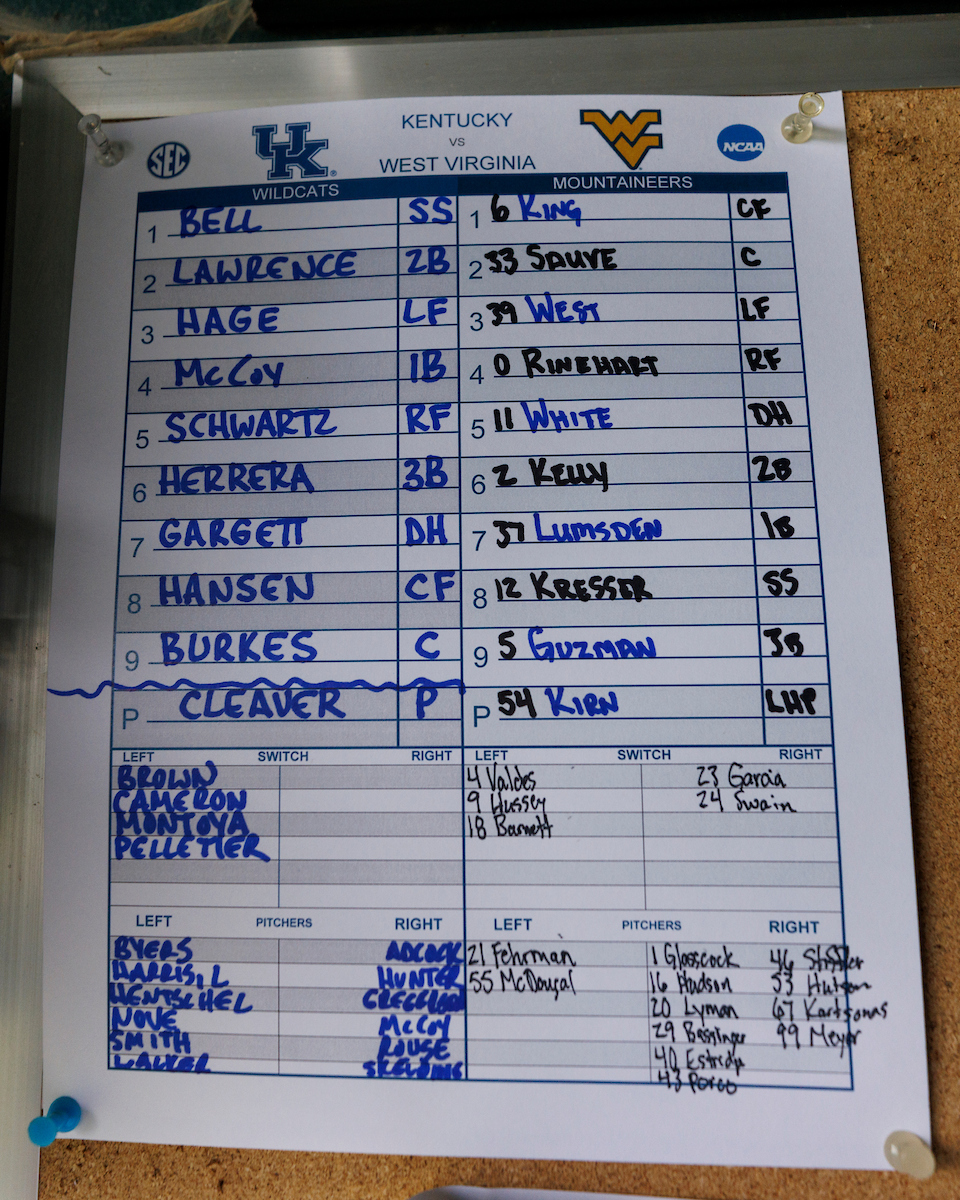 SEC
UK
KENTUCKY
VS
WEST VIRGINIA
WV
NCAA
WILDCATS MOUNTAINEERS
1 BELL SS 1 6 KING CF
2 LAWRENCE 2B 2 33 SAUVE C
3 HAGE LF 3 39 WEST LF
4 McCoy 1B 4 0 RINEHART RF
5 SCHWARTZ RF 5 11 WHITE DH
6 HERRERA 3B 6 2 KELLY 2B
7 GARGETT DH 7 37 LUMSDEN 1B
8 HANSEN CF 8 12 KRESSER SS
9 BURKES C 9 5 GUZMAN 3B
P CLEAVER P P 54 KIRN LHP
LEFT SWITCH RIGHT LEFT SWITCH RIGHT
BROWN 4 Valdes 23 Garcia
CAMERON 9 Hussey 24 Swain
MONTOYA 18 Barnett
PELLETIER
LEFT PITCHERS RIGHT LEFT PITCHERS RIGHT
BYERS ADCOCK 21 Fehrman 1 Glasscock 46
HARRIS, L HUNTER 55 McDougal 16 Hudson 53 Hutson
HENTSCHEL 20 Lyman 67 Kartsonas
NOVE McCoy 29 Bassinger 99 Meyer
SMITH ROUSE 40 Estrida
WALKER SKELDING 43 Porco